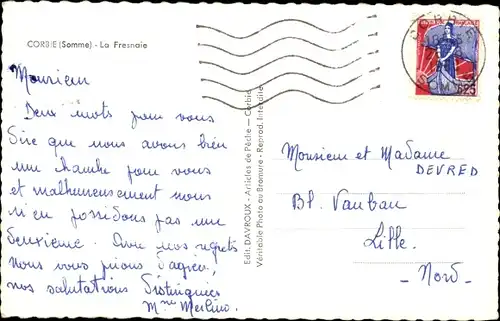 CORBIE (Somme) - La Fresnaie
Monsieur
Deux mots pour vous
Dire que nous avons bien
une chambre pour vous
et malheureusement nous
n'en possédons pas une
deuxième. Avec nos regrets
nous vous prions d'agréer,
nos salutations Distinguées
Mme Merlino.
Edit. DAVROUX - Articles de Pêche - Corbie
Véritable Photo au Bromure - Reprod. Interdite
Monsieur et Madame
DEVRED
Bl. Vauban
Lille.
- Nord -
0,25